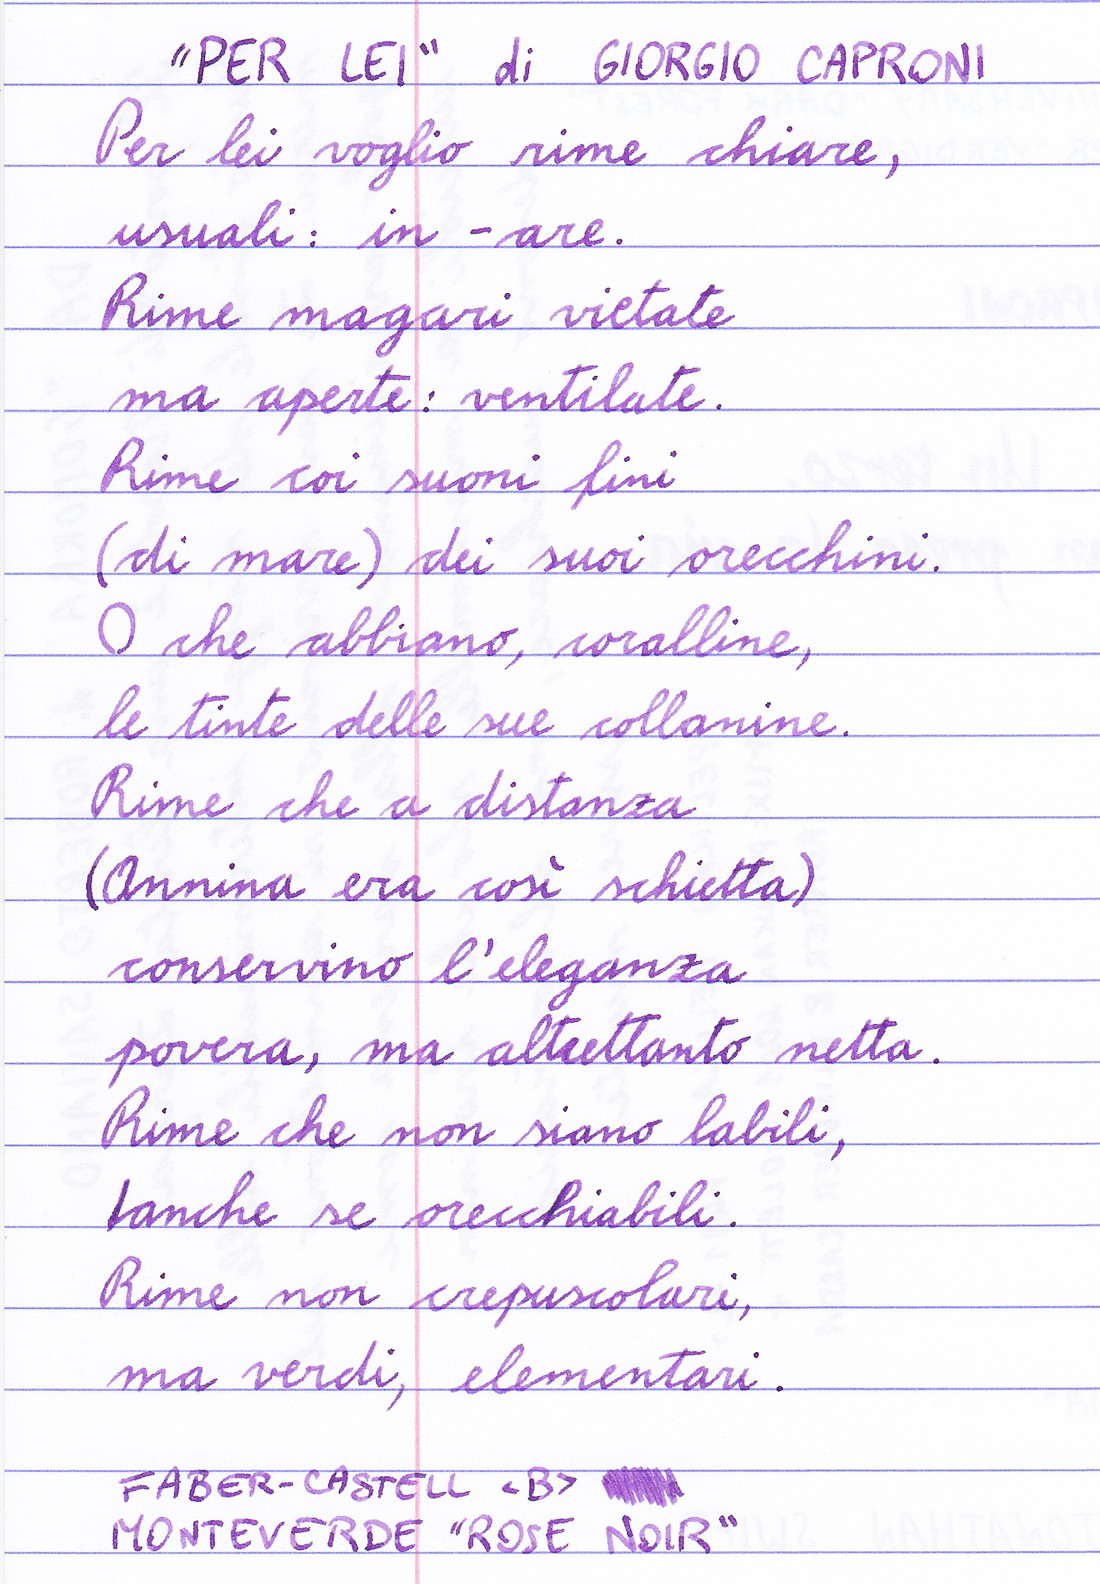 "PER LEI" di GIORGIO CAPRONI
Per lei voglio rime chiare,
usuali: in -are.
Rime magari vietate
ma aperte: ventilate.
Rime coi suoni fini
(di mare) dei suoi orecchini.
O che abbiano, coralline,
le tinte delle sue collanine.
Rime che a distanza
(Annina era così schietta)
conservino l'eleganza
povera, ma altrettanto netta.
Rime che non siano labili,
anche se orecchiabili.
Rime non crepuscolari,
ma verdi, elementari.
FABER-CASTELL <B>
MONTEVERDE "ROSE NOIR"